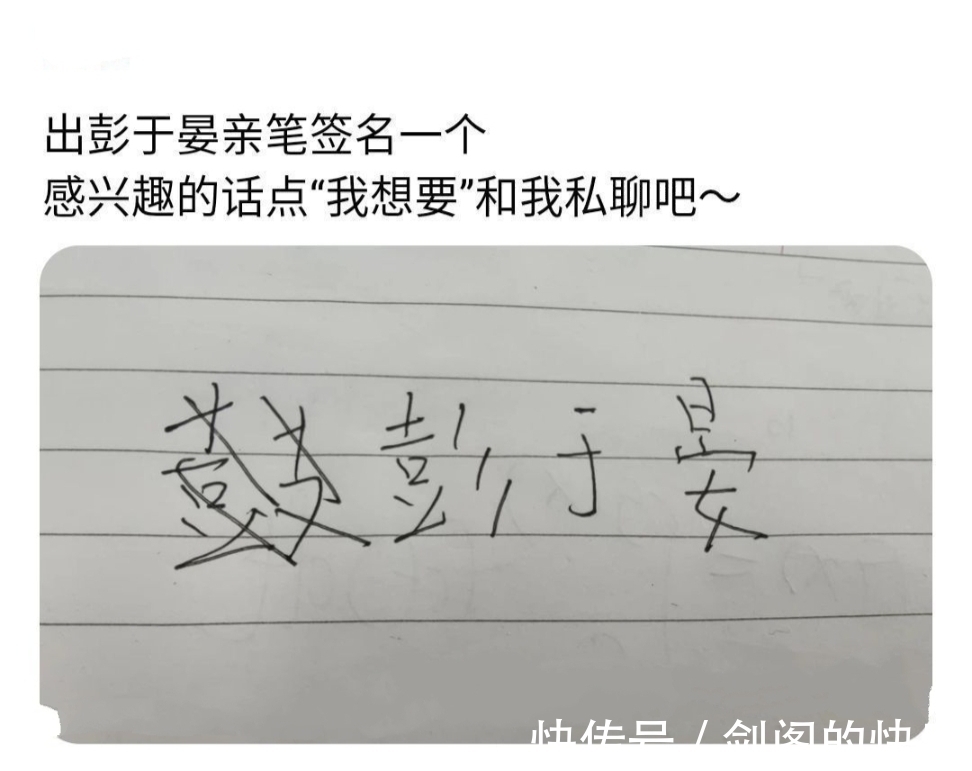 出彭于晏亲笔签名一个
感兴趣的话点“我想要”和我私聊吧～
彭于晏
快传号 / 剑阁的快